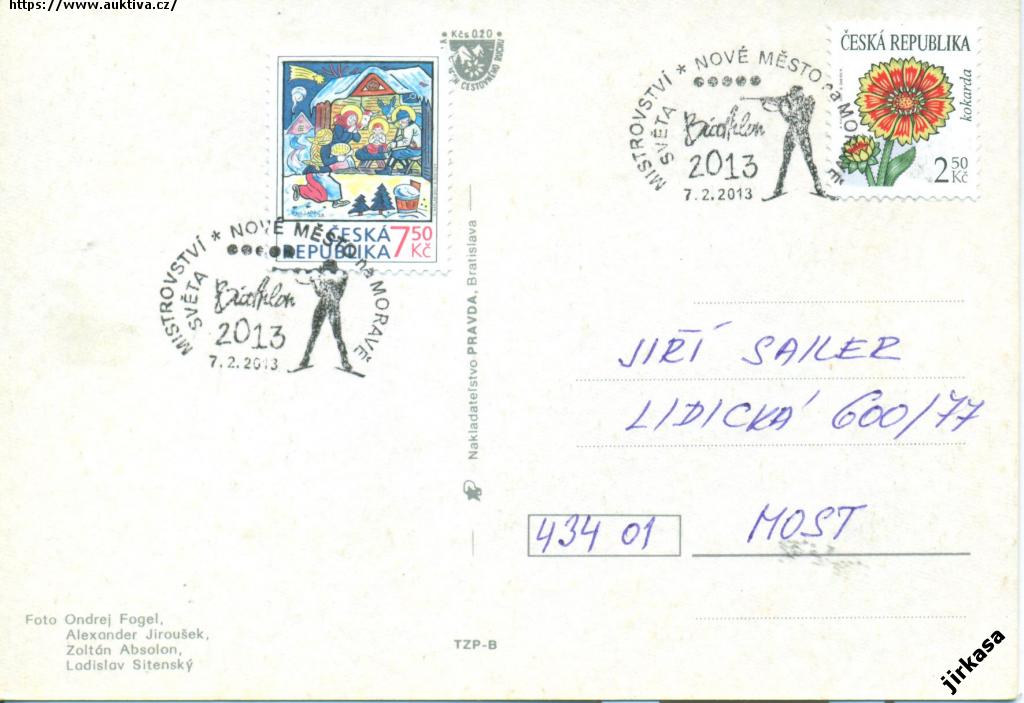 https://www.auktiva.cz/
Kčs 0,20
CESTOVNÉHO RUCHU
ČESKÁ
REPUBLIKA
7,50
Kč
MISTROVSTVÍ * NOVÉ MĚSTO na MORAVĚ
SVĚTA
Biathlon
2013
7.2.2013
MISTROVSTVÍ * NOVÉ MĚSTO na MORAVĚ
SVĚTA
Biathlon
2013
7.2.2013
ČESKÁ REPUBLIKA
kokarda
2,50
Kč
Nakladateľstvo PRAVDA, Bratislava
JIŘÍ SAILER
LIDICKÁ 600/77
434 01
MOST
Foto Ondrej Fogel,
Alexander Jiroušek,
Zoltán Absolon,
Ladislav Sitenský
TZP-B
jirkasa